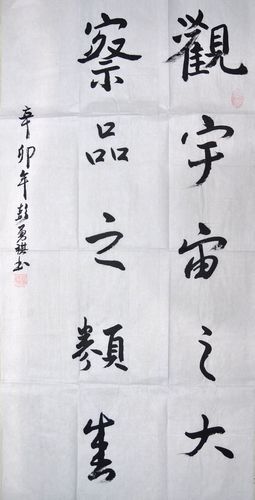 觀宇宙之大
察品之類盛
辛卯年彭勇书